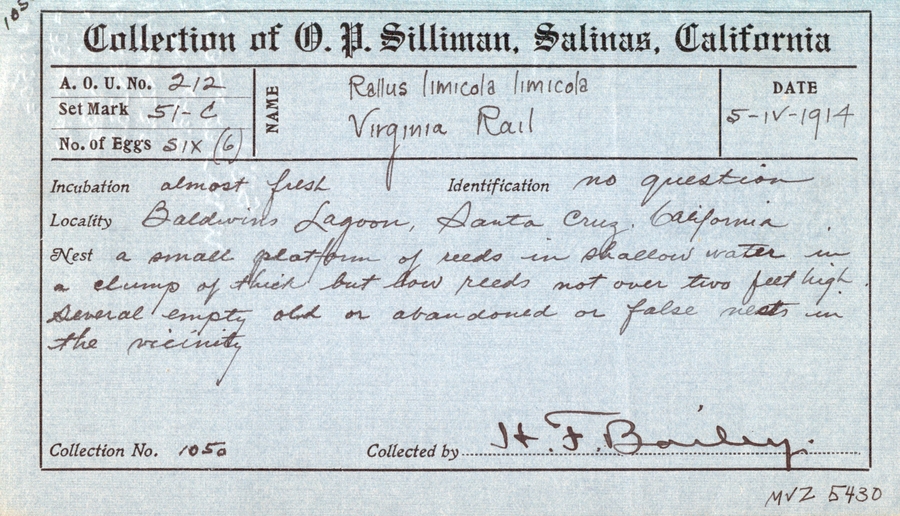 105
Collection of O. P. Silliman, Salinas, California
A. O. U. No. 212
Set Mark 51-C
No. of Eggs SIX (6)
NAME
Rallus limicola limicola
Virginia Rail
DATE
5-IV-1914
Incubation almost fresh
Identification no question
Locality Baldwins Lagoon, Santa Cruz. California
Nest a small platform of reeds in shallow water in
a clump of thick but low reeds not over two feet high.
Several empty old or abandoned or false nests in
the vicinity
Collection No. 1050
Collected by H. F. Bailey.
MVZ 5430